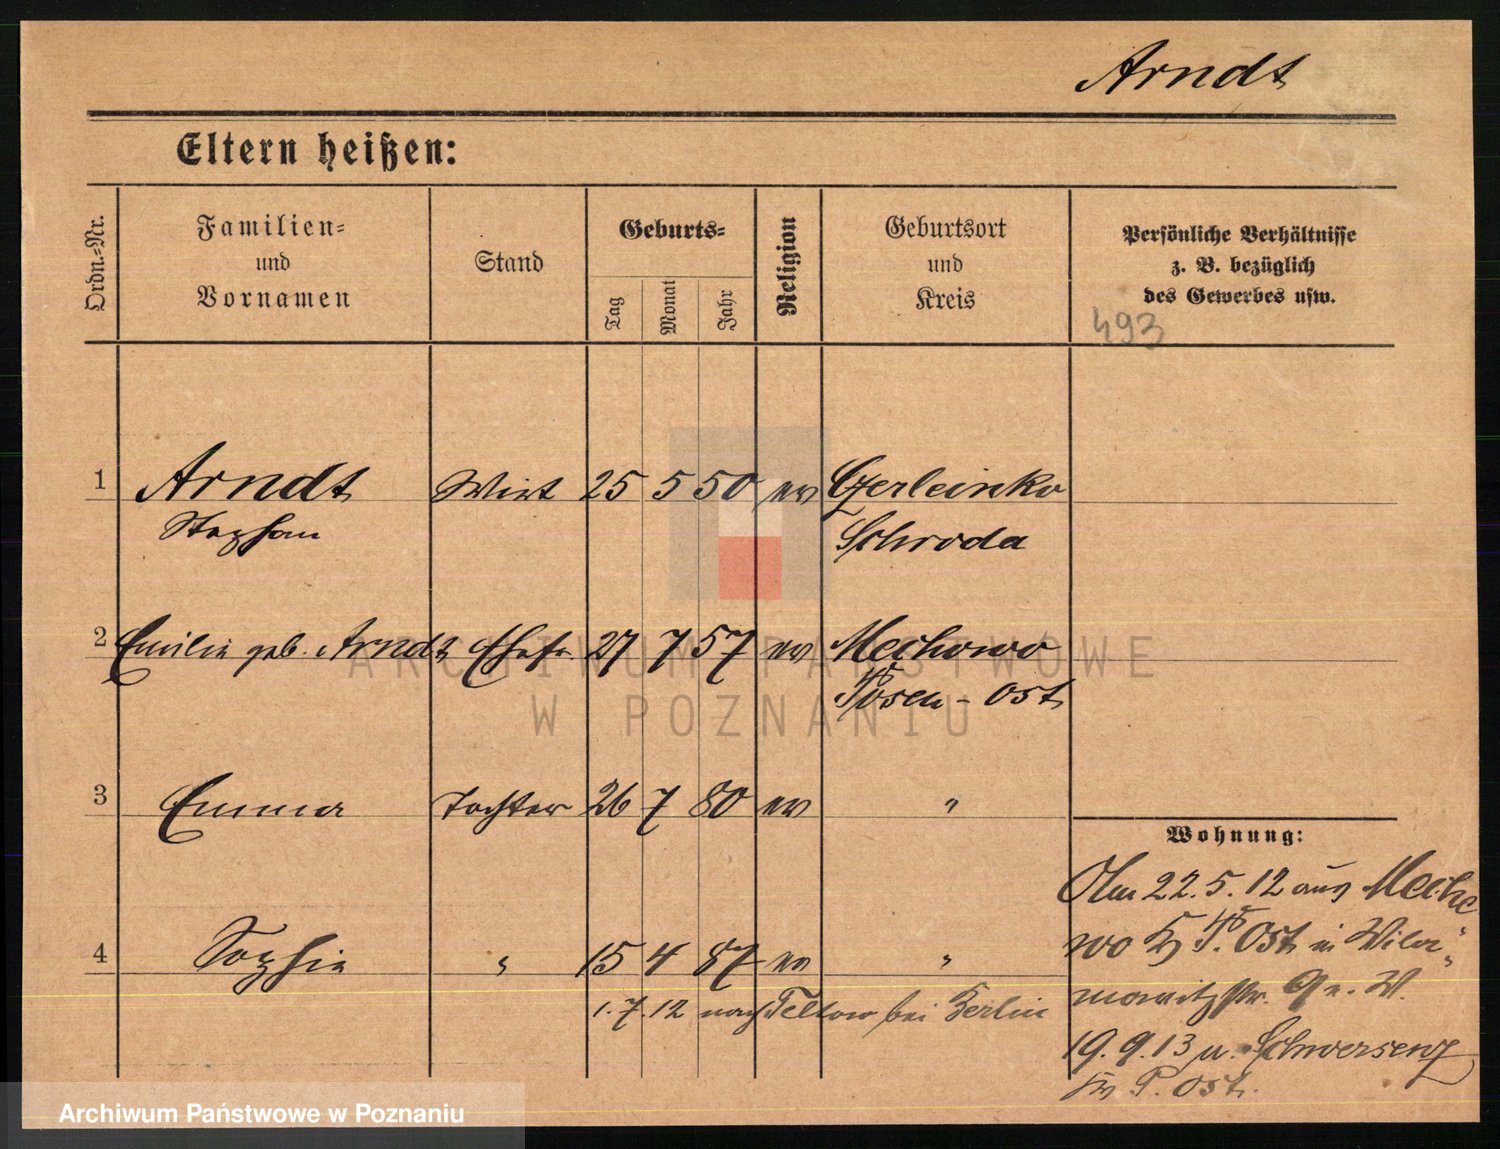 Arndt
Eltern heißen:
Ordn.-Nr.
Familien-
und
Vornamen
Stand
Geburts-
Tag
Monat
Jahr
Religion
Geburtsort
und
Kreis
Persönliche Verhältnisse
z. B. bezüglich
des Gewerbes usw.
493
1 Arndt Wirt 25 5 50 ev Czerleinko
Stephan Schroda
2 Emilie geb. Arndt Ehefr. 27 7 57 ev Mechowo
Posen-Ost
3 Emma Tochter 26 7 80 ev "
Wohnung:
Am 22.5.12 aus Mecho
wo Kr P. Ost in Wila-
mowitzstr. 9 b. W.
19.9.13 n. Schwersenz
Kr P. Ost.
4 Sophie " 15 4 87 ev "
1.7.12 nach Teltow bei Berlin
ARCHIWUM PAŃSTWOWE
W POZNANIU
Archiwum Państwowe w Poznaniu